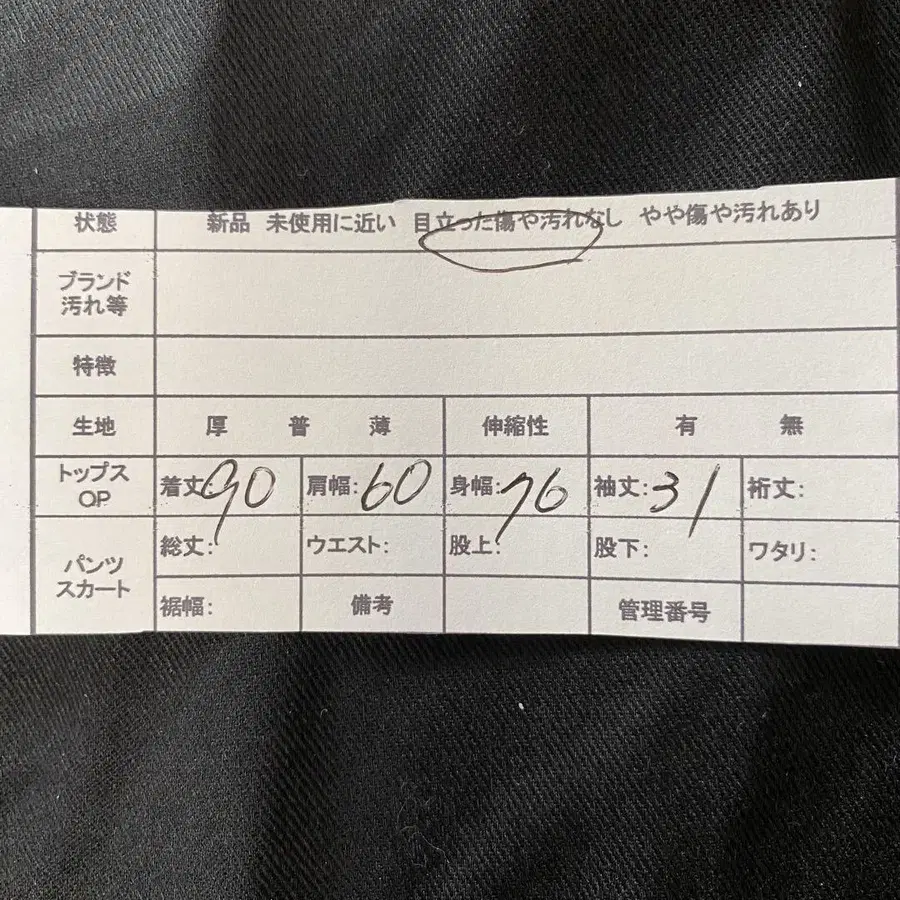 状態 新品 未使用に近い 目立った傷や汚れなし やや傷や汚れあり
ブランド
汚れ等
特徴
生地 厚 普 薄 伸縮性 有 無
トップス
OP
着丈90 肩幅:60 身幅:76 袖丈:31 裄丈:
パンツ
スカート
総丈: ウエスト: 股上: 股下: ワタリ:
裾幅: 備考 管理番号